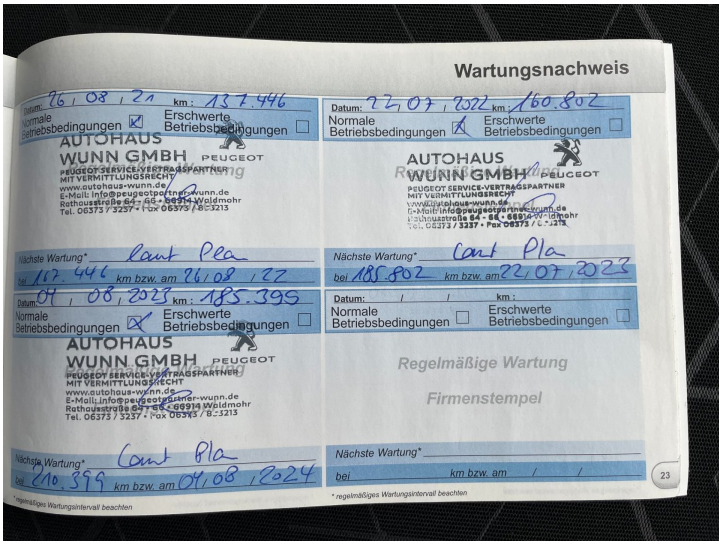 Wartungsnachweis
Datum: 26 / 08 / 21 km : 137.446
Normale Betriebsbedingungen Erschwerte Betriebsbedingungen
AUTOHAUS
WUNN GMBH PEUGEOT
Regelmäßige Wartung
PEUGEOT SERVICE-VERTRAGSPARTNER
MIT VERMITTLUNGSRECHT
www.autohaus-wunn.de
E-Mail: info@peugeotpartner-wunn.de
Rathausstraße 64 - 66 • 66914 Waldmohr
Tel. 06373 / 3237 • Fax 06373 / 8:3213
Nächste Wartung* laut Plan
bei 167.446 km bzw. am 26 / 08 / 22
Datum: 22, 07 / 2022 km : 160.802
Normale Betriebsbedingungen Erschwerte Betriebsbedingungen
AUTOHAUS
WUNN GMBH PEUGEOT
Regelmäßige Wartung
PEUGEOT SERVICE-VERTRAGSPARTNER
MIT VERMITTLUNGSRECHT
www.autohaus-wunn.de
E-Mail: info@peugeotpartner-wunn.de
Rathausstraße 64 - 66 - 66914 Waldmohr
Tel. 06373 / 3237 • Fax 06373
Nächste Wartung* laut Plan
bei 185.802 km bzw. am 22 / 07 / 2023
Datum: 04 / 08 / 2023 km : 185.399
Normale Betriebsbedingungen Erschwerte Betriebsbedingungen
AUTOHAUS
WUNN GMBH PEUGEOT
Regelmäßige Wartung
PEUGEOT SERVICE-VERTRAGSPARTNER
MIT VERMITTLUNGSRECHT
www.autohaus-wunn.de
E-Mail: info@peugeotpartner-wunn.de
Rathausstraße 64 - 66 • 66914 Waldmohr
Tel. 06373 / 3237 • Fax 06373 / 8:3213
Nächste Wartung* laut Plan
bei 210.399 km bzw. am 04 / 08 / 2024
* regelmäßiges Wartungsintervall beachten
Datum: / / km :
Normale Betriebsbedingungen Erschwerte Betriebsbedingungen
Regelmäßige Wartung
Firmenstempel
Nächste Wartung*
bei km bzw. am / /
* regelmäßiges Wartungsintervall beachten
23